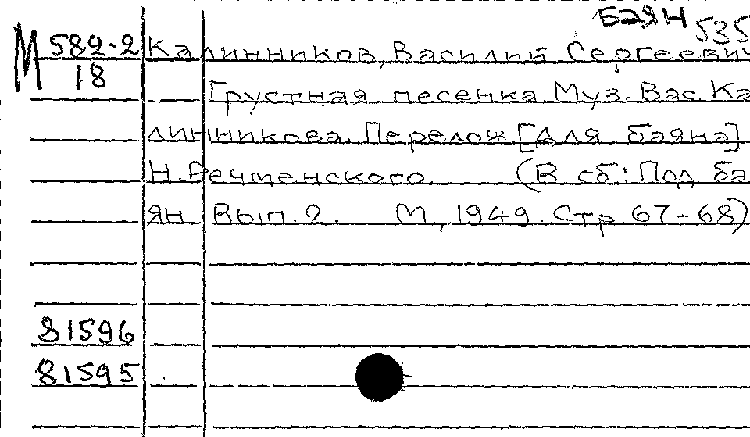 Баян 535
М 582-2 Калинников, Василий Сергеевич
18 Грустная песенка Муз. Вас. Ка
линникова. Перелож [для баяна]
Н. Речменского. (В сб: Под ба
ян Вып. 2. М, 1949. Стр 67-68)
81596
81595